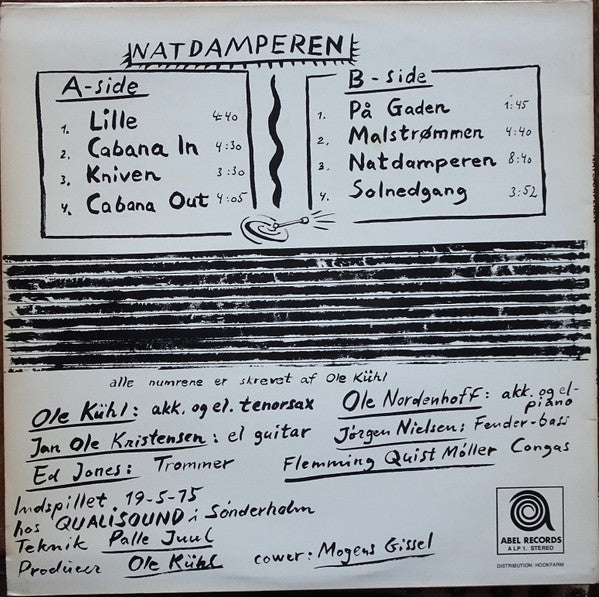 NATDAMPEREN
A-side
1. Lille 4:40
2. Cabana In 4:30
3. Kniven 3:30
4. Cabana Out 4:05
B-side
1. På Gaden 1:45
2. Malstrømmen 4:40
3. Natdamperen 8:40
4. Solnedgang 3:52
alle numrene er skrevet af Ole Kühl
Ole Kühl: akk. og el. tenorsax
Ole Nordenhoff: akk. og el-
piano
Jan Ole Kristensen: el guitar
Jörgen Nielsen: Fender-bass
Ed Jones: Trommer
Flemming Quist Möller Congas
Indspillet 19-5-75
hos QUALISOUND i Sönderholm
Teknik Palle Juul
Producer Ole Kühl
cower: Mogens Gissel
ABEL RECORDS
A LP 1. STEREO
DISTRIBUTION: HOOKFARM